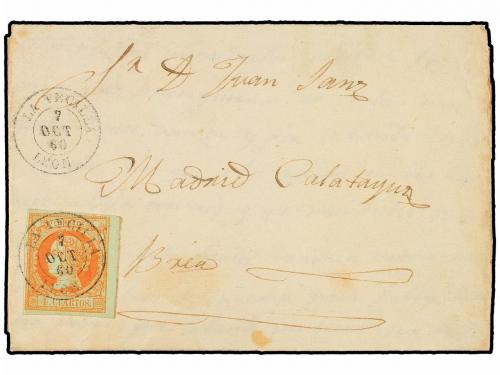 Sr D Juan Sanz
LA VECILLA
7
OCT
60
LEON
Madrid Calatayud
LA VECILLA
7
OCT
60
LEON
Brea
4 CUARTOS.